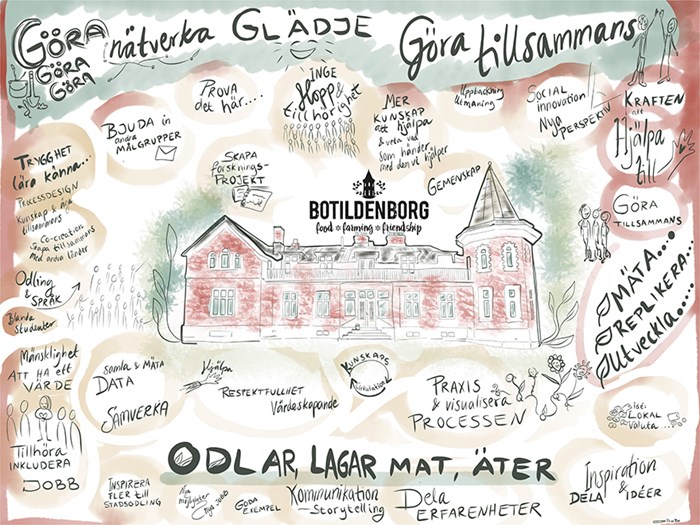 GÖRA
GÖRA
GÖRA
nätverka
GLÄDJE
Göra tillsammans
PROVA
det här....
INGE
Hopp &
tillhörighet
BJUDA in
andra
MÅLGRUPPER
SKAPA
forsknings-
PROJEKT
MER
KUNSKAP
att hjälpa
& veta vad
som händer
med den vi hjälper
Uppbackning
utmaning
SOCIAL
innovation
Nya
PERSPEKTIV
KRAFTEN
att
Hjälpa
till
GEMENSKAP
TRYGGHET
lära känna...
PROCESSDESIGN
Kunskap & äta
tillsammans
Co-creation
Skapa tillsammans
med andra länder
BOTILDENBORG
food farming friendship
GÖRA
TILLSAMMANS
Odling
& SPRÅK
Blanda
studenter
MÄTA....
REPLIKERA...
Utveckla.....
Mänsklighet
ATT HA ett
VÄRDE
samla & MÄTA
DATA
SAMVERKA
Hjälpa
RESPEKTFULLHET
Värdeskapande
KUNSKAPS
cirkulation
PRAXIS
& visualisera
PROCESSEN
LOKAL
valuta...
Tillhöra
INKLUDERA
JOBB
ODLAR, LAGAR MAT, ÄTER
INSPIRERA
FLER till
STADSODLING
Nya
möjligheter
nya jobb
GODA
EXEMPEL
Kommunikation
- Storytelling
Dela
ERFARENHETER
Inspiration
DELA & IDÉER